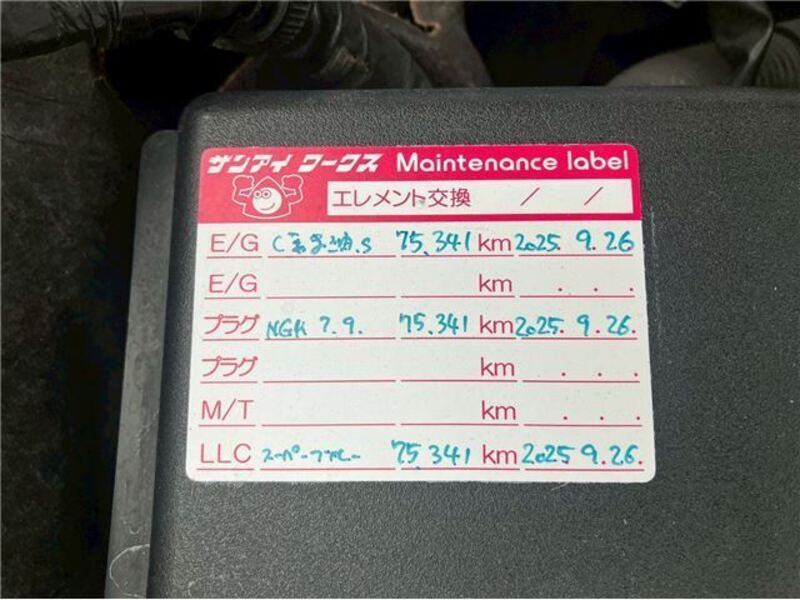 サンアイ ワークス Maintenance label
エレメント交換 / /
E/G C 油.S 75,341 km 2025. 9. 26
E/G km . . .
プラグ NGK 7.9. 75,341 km 2025. 9. 26.
プラグ km . . .
M/T km . . .
LLC スーパー 75,341 km 2025 9. 26.